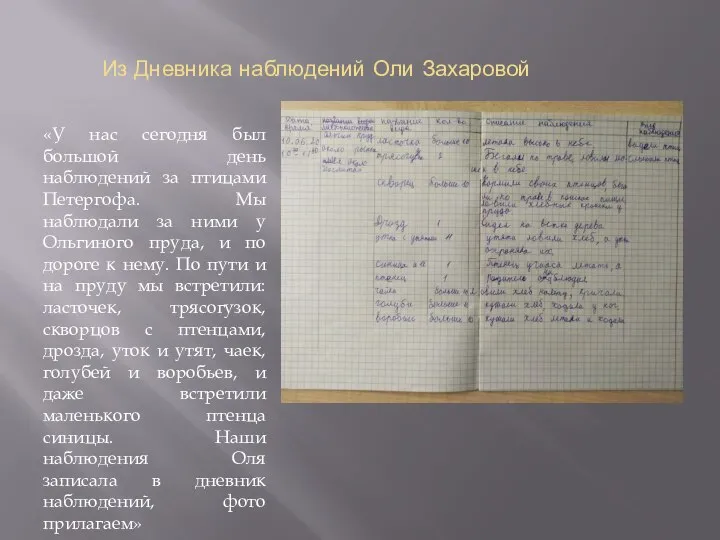 Из Дневника наблюдений Оли Захаровой
«У нас сегодня был
большой день
наблюдений за птицами
Петергофа. Мы
наблюдали за ними у
Ольгиного пруда, и по
дороге к нему. По пути и
на пруду мы встретили:
ласточек, трясогузок,
скворцов с птенцами,
дрозда, уток и утят, чаек,
голубей и воробьев, и
даже встретили
маленького птенца
синицы. Наши
наблюдения Оля
записала в дневник
наблюдений, фото
прилагаем»
Дата время название вида кол-во Описание наблюдения
ласточка больше 10 летала высоко в небе
трясогузка 2 Бегали по траве
скворец больше 10 кормили своих птенцов
Дрозд 1 сидел на ветке дерева
утка с утятами 11 утята ловили хлеб, а утка
охраняла их
синица 1 Птенец учился летать, а
чайка больше
голуби больше кушали хлеб, ходили у ног
воробьи больше 10 кушали хлеб летали и ходили